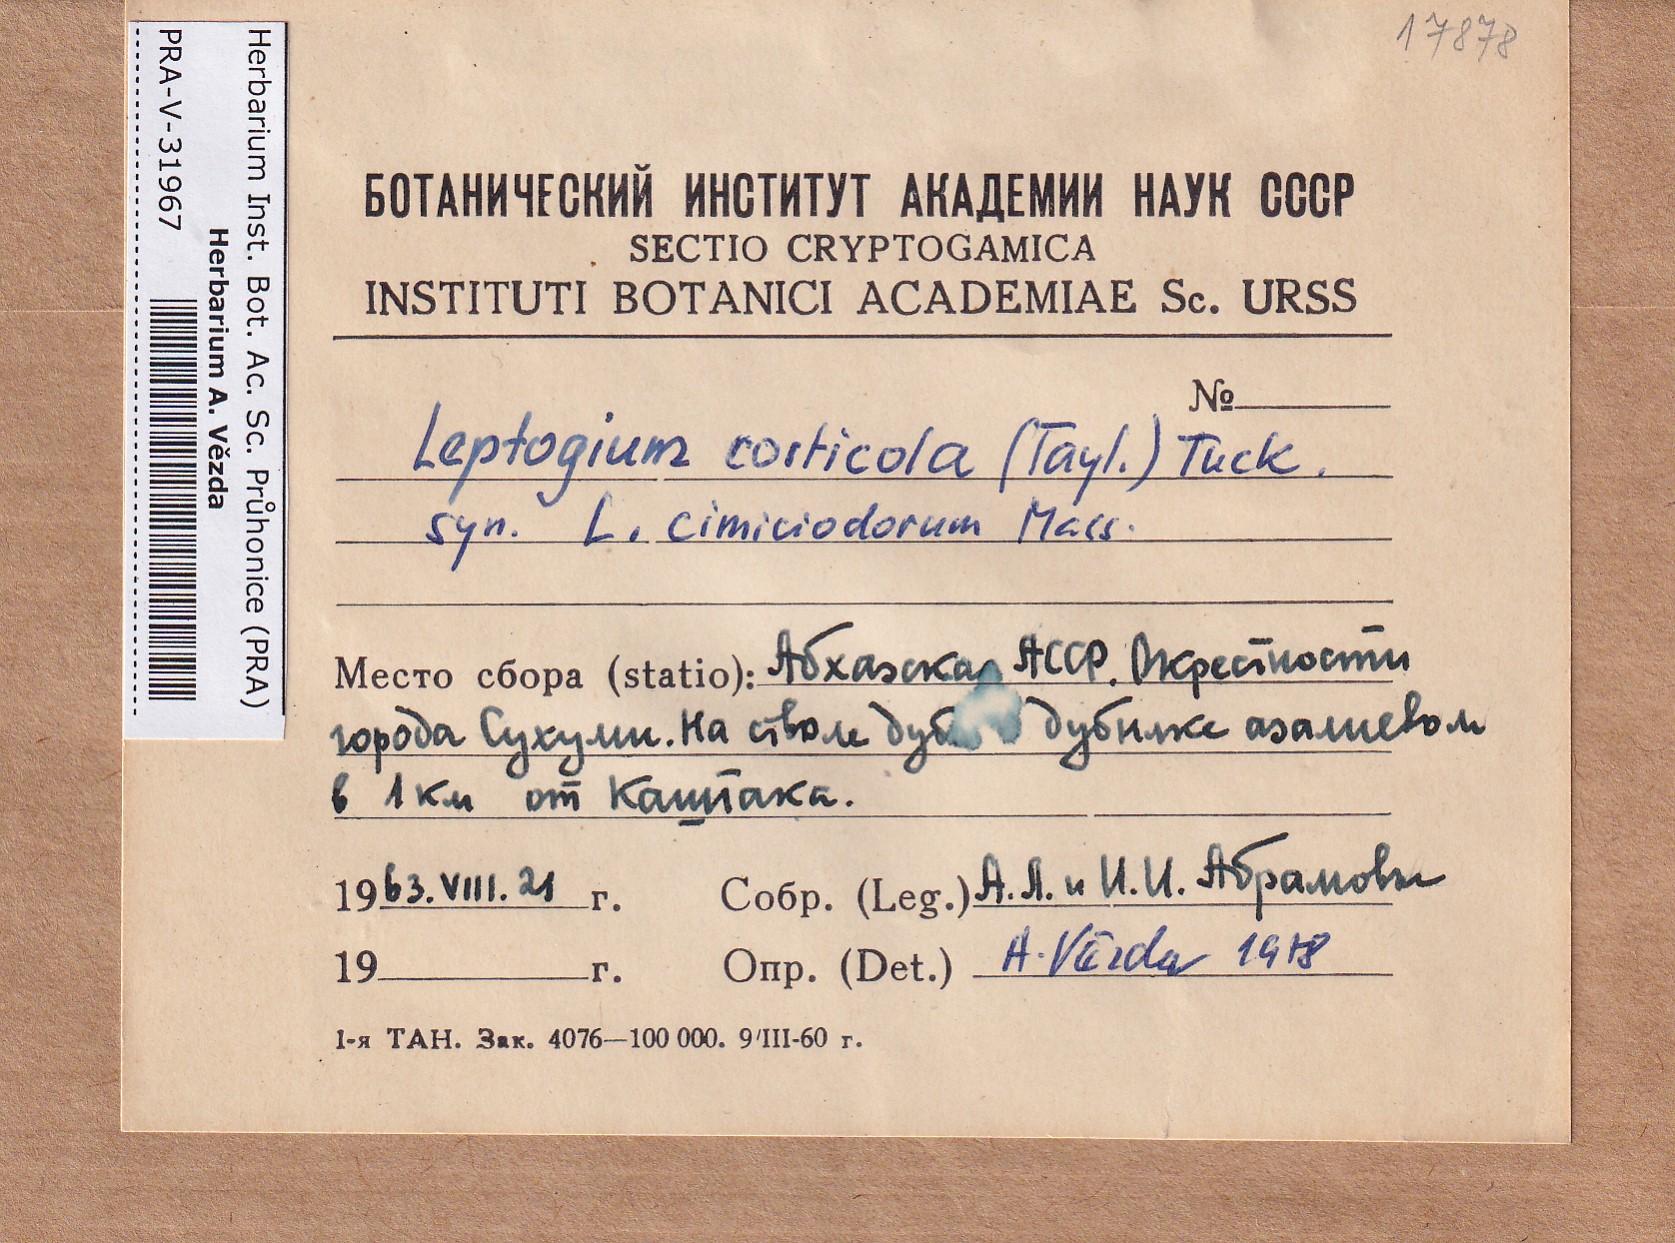 17878
Herbarium Inst. Bot. Ac. Sc. Průhonice (PRA)
Herbarium A. Vězda
PRA-V-31967
БОТАНИЧЕСКИЙ ИНСТИТУТ АКАДЕМИИ НАУК СССР
SECTIO CRYPTOGAMICA
INSTITUTI BOTANICI ACADEMIAE Sc. URSS
№
Leptogium corticola (Tayl.) Tuck.
syn. L. cimiciodorum Mass.
Место сбора (statio): Абхазская АССР. Окрестности
города Сухуми. На стволе дубнике азалиевом
в 1 км от Каштака.
1963.VIII.21 г. Собр. (Leg.) А.Л. и И.И. Абрамовы
19 г. Опр. (Det.) A. Vězda 1978
1-я ТАН. Зак. 4076—100 000. 9/III-60 г.